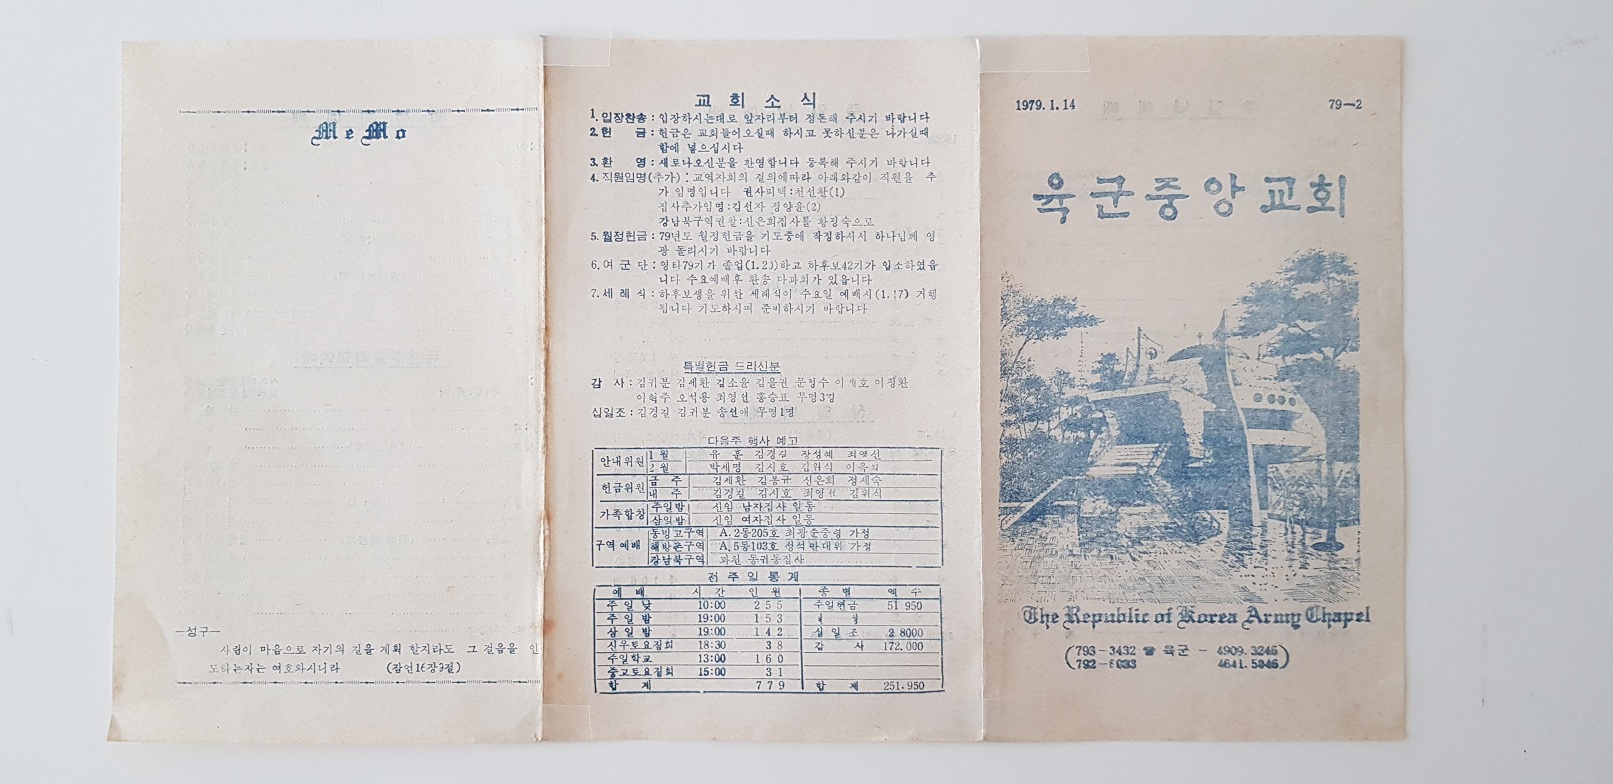 MeMo
—성구—
사람이 마음으로 자기의 길을 계획 할지라도 그 걸음을 인
도하는자는 여호와시니라 (잠언16장9절)
교회소식
1. 입장찬송 : 입장하시는대로 앞자리부터 정돈해 주시기 바랍니다
2. 헌 금 : 헌금은 교회들어오실때 하시고 못하신분은 나가실때
함에 넣으십시다
3. 환 영 : 새로나오신분을 환영합니다 등록해 주시기 바랍니다
4. 직원임명(추가) : 교역자회의 결의에따라 아래와같이 직원을 추
가 임명입니다 권사피택:천선환(1)
집사추가임명:김선자 정양윤(2)
강남북구역권찰:신은희집사를 황정숙으로
5. 월정헌금 : 79년도 월정헌금을 기도중에 작정하셔서 하나님께 영
광 돌리시기 바랍니다
6. 여 군 단 : 영타79기가 졸업하고 하후보42기가 입소하였읍
니다 수요예배후 환송 다과회가 있읍니다
7. 세 례 식 : 하후보생을 위한 세례식이 수요일 예배시(1.17) 거행
됩니다 기도하시며 준비하시기 바랍니다
특별헌금 드리신분
감 사 : 김귀분 김세환 김소윤 김을권 문정수 이정환
이혁주 오석용 최영선 홍승표 무명3명
십일조 : 김경길 김귀분 송선애 무명1명
다음주 행사 예고
안내위원 1월 유 훈 김경길 장성혜 최영선
2월 박세명 김시호 김위식
헌금위원 금 주 김세환 김봉규 신은희 정세숙
내 주 김경길 김시호 최영선 김위식
가족합창 주일밤 신임 남자집사 일동
삼일밤 신임 여자집사 일동
구역예배 동빙고구역 A.2동205호 최광준중령 가정
해방촌구역 A.5동103호 성석반대위 가정
강남북구역 과천 동귀동집사
전주일통계
예 배 시 간 인 원 종 명 액 수
주 일 낮 10:00 255 주일헌금 51.950
주 일 밤 19:00 153
삼 일 밤 19:00 142 십 일 조 28000
신우토요집회 18:30 38 감 사 172.000
주일학교 13:00 160
중고토요집회 15:00 31
합 계 779 합 계 251.950
1979.1.14 79—2
육군중앙교회
The Republic of Korea Army Chapel
(793-3432 ☎ 육군 - 4909.3245